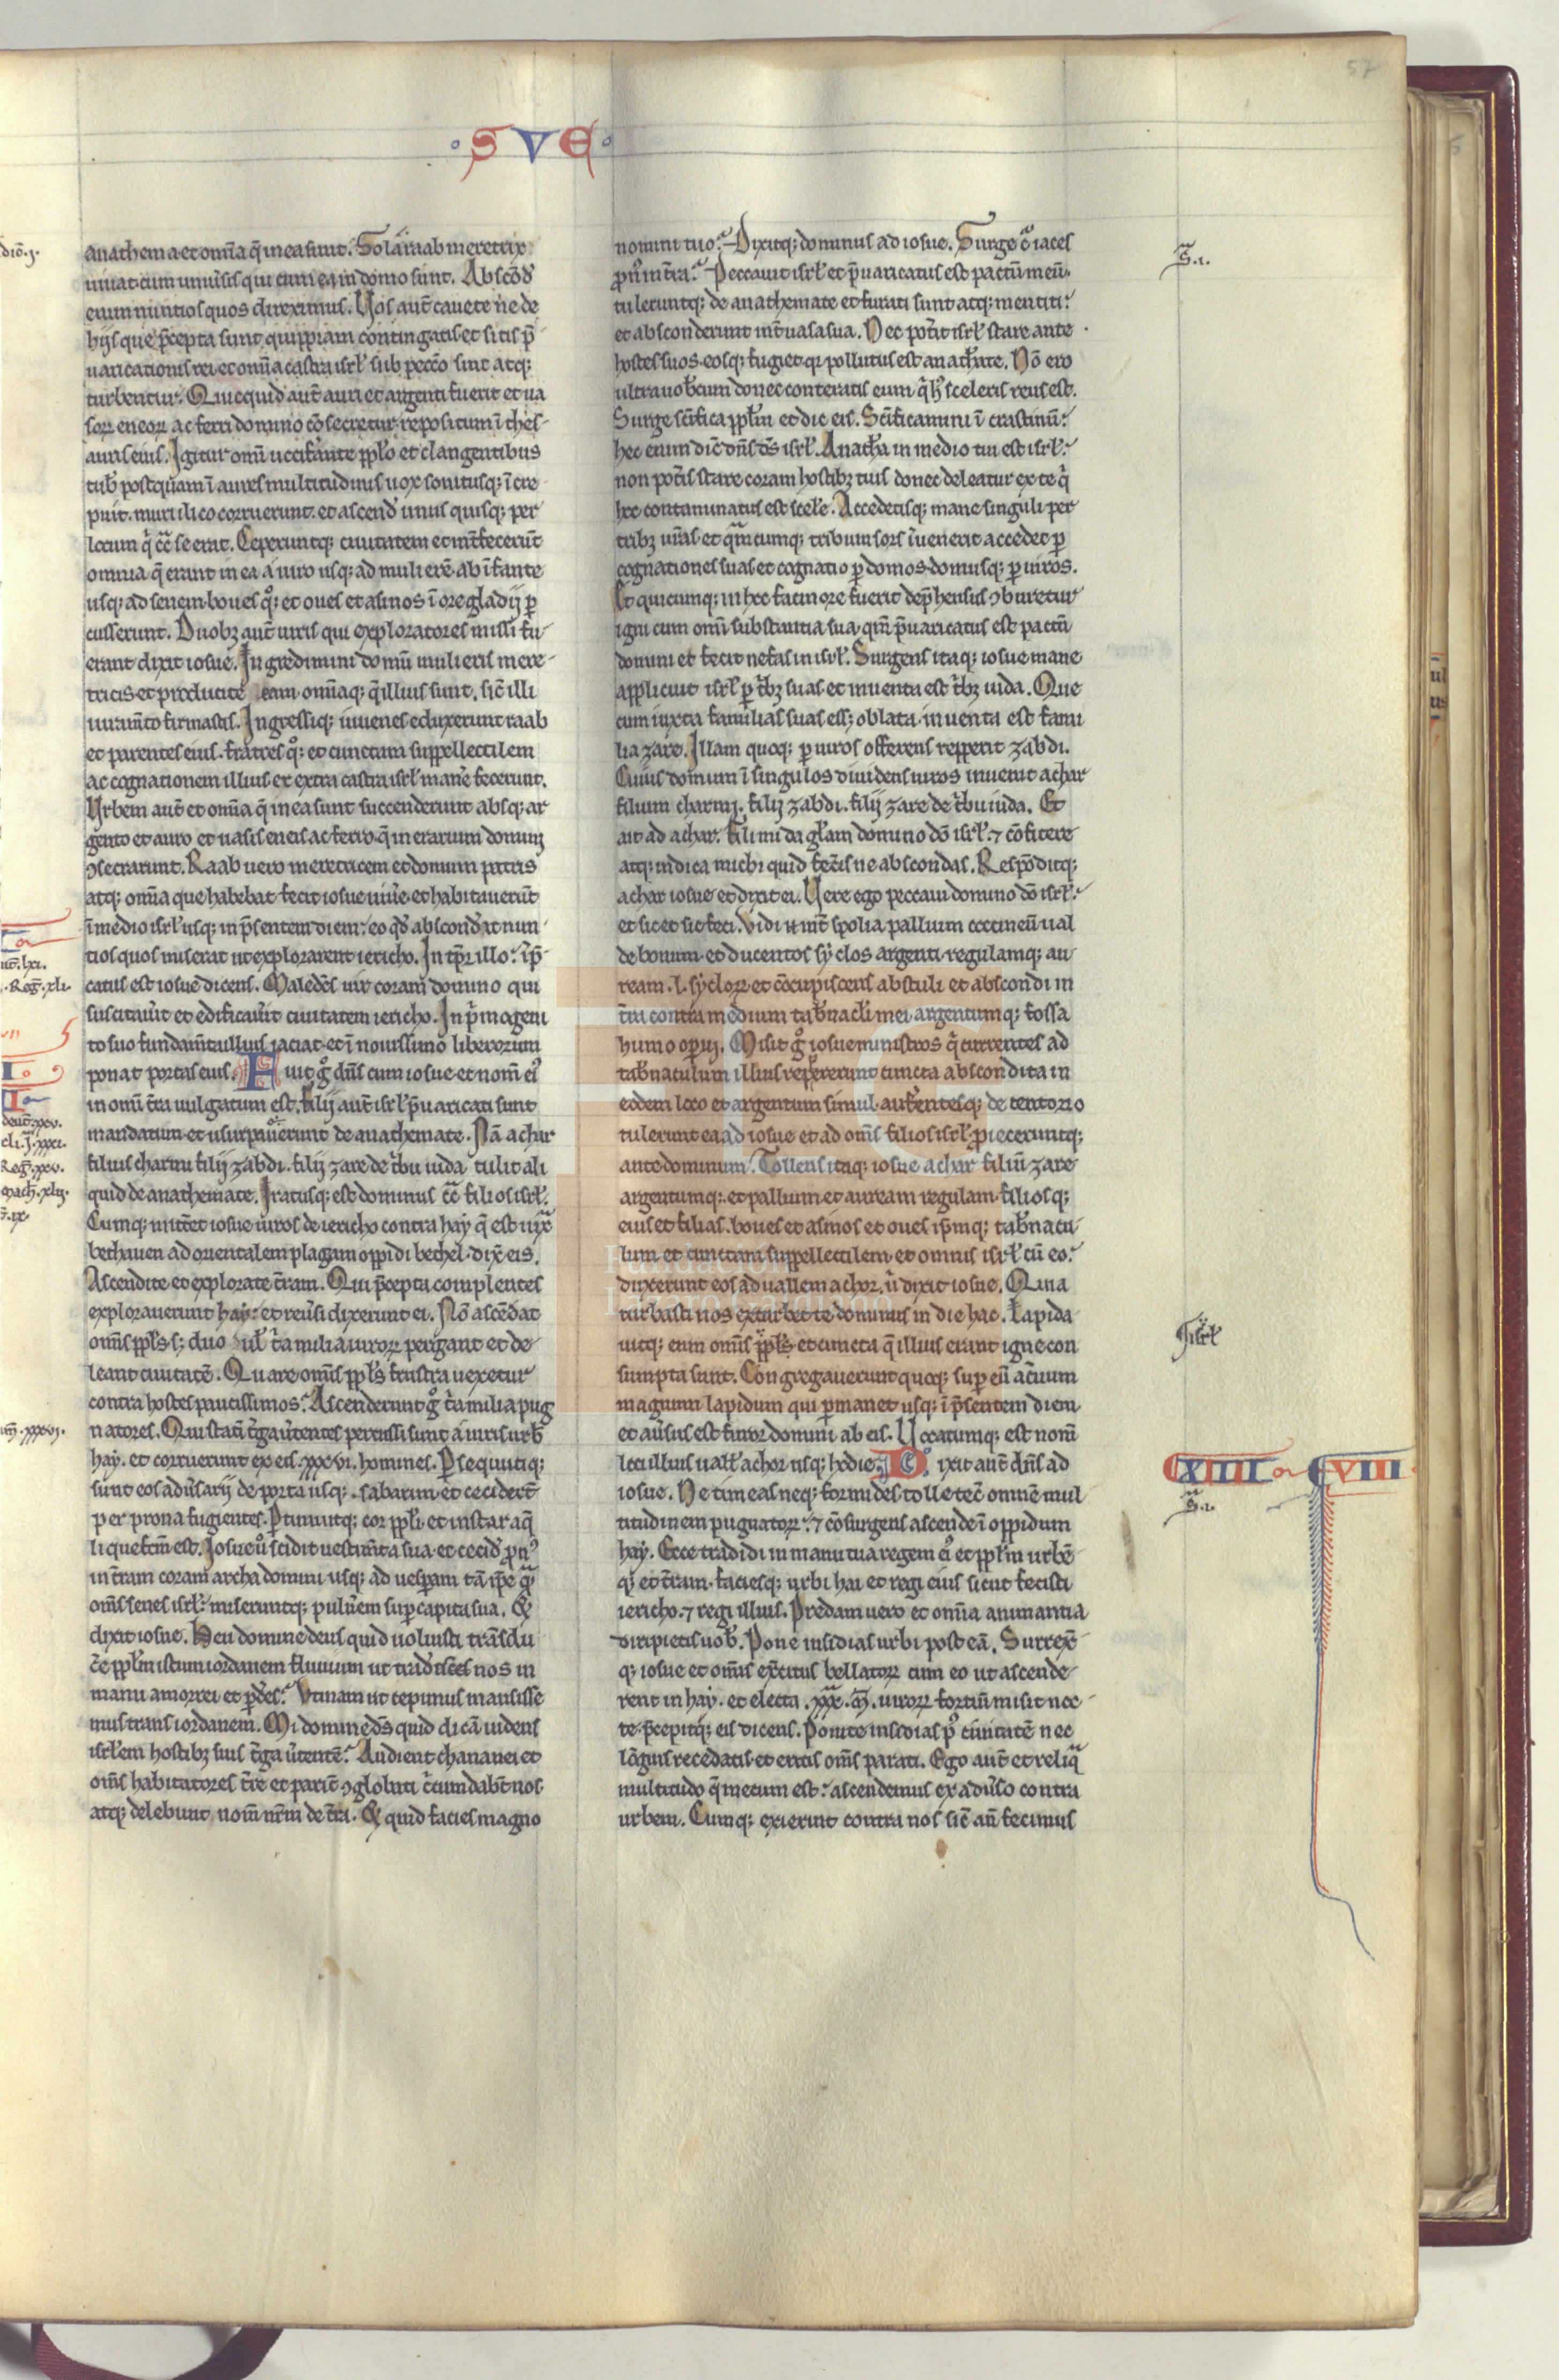 · S V E ·
anathema et om̄ia q̄ in ea sunt. Sola raab meretrix
uiuat cum uniu͛sis qui cum ea in domo sunt. Abscōd͛
enim nuntios quos direximus. Uos aut̄ cauete ne de
hijs que p̄cepta sunt quippiam contingatis et sitis p̄
uaricationis rei et om̄ia castra isrł sub peccō sint atq;
turbentur. Quicquid aut̄ auri et argenti fuerit et ua
soꝝ eneoꝝ ac ferri domino cōsecretur repositum ī thes
auris eius. Igitur omī uocif͛ante ppło et clangentibus
tub͛ postquam ī aures multitudinis uox sonitusq; īcre
puit. muri ilico corruerunt. et ascend͛ unus quisq; per
locum q̇ cc̄ se erat. Ceperuntq; ciuitatem et int͛fecerūt
omnia q̄ erant in ea a uiro usq; ad mulierē. ab īfante
usq; ad senem. boues qͦ; et oues et asinos ī ore gladij ꝑ
cusserunt. Duobꝫ aut̄ uiris qui exploratores missi fu
erant dixit iosue. Ingredimini domū mulieris mere
tricis et producite eam. omīaq; q̄ illius sunt. sic̄ illi
iuramto firmastis. Ingressiq; iuuenes eduxerunt raab
et parentes eius. fratres qͦ; et cunctam suppellectilem
ac cognationem illius et extra castra isrł maner͛ fecerunt.
Urbem aut̄ et om̄ia q̄ in ea sunt succenderunt absq; ar
gento et auro et uasis eneis ac ferro. q̄ in erarium domini
ꝯsecrarunt. Raab uero meretricem et domum patris
atq; om̄ia que habebat fecit iosue uiu͛e. et habitauerūt
ī medio isrł usq; in p̄sentem diem: eo qd͛ abscond͛it nun
tios quos miserat ut explorarent iericho. In tp̄r illo: īp̄
catus est iosue dicens. Maledc̄s uir coram domino qui
suscitau͛it et edificau͛it ciuitatem iericho. In ṗmogeni
to suo fundam̄ta illius iaciat. et ī nouissimo liberorum
ponat portas eius. Fuit gͦ dn̄s cum iosue et nom̄ eiꝰ
in omī t͛ra uulgatum est. Filij aut̄ isrł p̄uaricati sunt
mandatum et usurpauerunt de anathemate. Nā achar
filius charmi filij zabdi. filij zare de t͛bu iuda tulit ali
quid de anathemate. Iratusq; est dominus cc̄ filios isrł.
Cumq; mitt͛et iosue uiros de iericho contra hay q̄ est iux̄
bethauen ad orientalem plagam oppidi bethel. dix̄ eis.
Ascendite et explorate t͛ram. Qui p̄cepta complentes
explorauerunt hay: et reu͛si dixerunt ei. Nō ascēdat
omīs ppłs. s; duo uł t͛a milia uiroꝝ pergant et de
leant ciuitatē. Quare omīs ppłs frustra uexetur
contra hostes paucissimos? Ascenderunt gͦ t͛a milia pug
natores. Qui statī t͛ga u͛tentes percussi sunt a uiris urb͛
hay. et corruerunt ex eis .xxxvi. homines. Ꝑsequutiq;
sunt eos adu͛sarij de porta usq; sabarim. et ceciderūt
per prona fugientes. Ꝑtimuitq; cor ppłi. et instar aq̄
liquefcm̄ est. Iosue uͦ scidit uestim̄ta sua. et cecid͛ ꝓnꝰ
in t͛ram coram archa domini usq; ad uesꝑam tā ip̄e qᷓ
omīs senes isrł: miseruntq; puluerem suꝑ capita sua. Et
dixit iosue. Heu domine deus quid uoluisti trāsdu
c͛e ppłm istum iordanem fluuium ut trad͛es nos in
manu amorrei et ꝑd͛es? Utinam ut cepimus mansisse
mus trans iordanem. Mi domine ds̄ quid dicā uidens
isrłem hostibꝫ suis t͛ga u͛tentē? Audient chananei et
omīs habitatores t͛re et parit̄ ꝯglobati c͛cumdabt̄ nos
atq; delebunt nom̄ nr̄m de t͛ra. Et quid facies magno
nomini tuo? Dixitq; dominus ad iosue. Surge c͛ iaces
ꝓnꝰ in t͛ra? Peccauit isrł et p̄uaricatus est pactū meū.
tuleruntq; de anathemate et furati sunt atq; mentiti:
et absconderunt int͛ uasa sua. Nec pot͛it isrł stare ante
hostes suos. eosq; fugiet. qꝛ pollutus est anath͛ate. Nō ero
ultra uob͛cum donec conteratis eum q̇ hꝰ sceleris reus est.
Surge sc̄ifica ppłm et dic eis. Sc̄ificamini ī crastinū:
hec enim dic̄ dn̄s ds̄ isrł. Anath͛a in medio tui est isrł:
non pot͛is stare coram hostibꝫ tuis donec deleatur ex te q̇
hoc contaminatus est scel͛e. Accedetisq; mane singuli per
tribꝫ ur̄as. et qᷓmcumq; tribum sors īuenerit accedet ꝑ
cognationes suas et cognatio ꝑ domos. domusq; ꝑ uiros.
Et quicumq; in hoc facinore fuerit dep̄hensus ꝯburetur
igni cum omī substantia sua. qm̄ p̄uaricatus est pactū
domini et fecit nefas in isrł. Surgens itaq; iosue mane
applicuit isrł ꝑ t͛bꝫ suas et inuenta est t͛bꝫ iuda. Que
cum iuxta familias suas ess; oblata. inuenta est fami
lia zare. Illam quoq; ꝑ uiros offerens repperit zabdi.
Cuius domum ī singulos diuidens uiros inuenit achar
filium charmi. filij zabdi. filij zare de t͛bu iuda. Et
ait ad achar. Fili mi da głam domino dō isrł. ⁊ cōfitere
atq; indica michi quid fec͛is ne abscondas. Respōditq;
achar iosue et dixit ei. Uere ego peccaui domino dō isrł:
et sic et sic feci. Uidi int͛ spolia. pallium coccineū ual
de bonum. et ducentos syclos argenti. regulamq; au
ream .l. sycloꝝ et cōcupiscens abstuli et abscondi in
t͛ra contra medium tab͛nacłi mei. argentumq; fossa
humo oꝑui. Misit gͦ iosue ministros. q̇ currentes ad
tab͛naculum illius reppererunt cuncta abscondita in
eodem loco et argentum simul. auferentesq; de tentorio
tulerunt ea ad iosue et ad omīs filios isrł. ꝓieceruntq;
ante dominum. Tollens itaq; iosue achar filiū zare
argentumq;. et pallium et auream regulam. filiosq;
eius et filias. boues et asinos et oues ip̄mq; tab͛nacu
lum et cunctam suppellectilem. et omnis isrł cū eo:
duxerunt eos ad uallem achor. u̇ dixit iosue. Quia
turbasti nos exturbet te dominus in die hac. Lapida
uitq; eum omīs ppłs. et cuncta q̄ illius erant igne con
sumpta sunt. Congregaueruntquoq; suꝑ eū ac͛uum
magnum lapidum qui ꝑmanet usq; ī p̄sentem diem
et au͛sus est furor domini ab eis. Uocatumq; est nom̄
loci illius uall͛ achor usq; hodie. Dixit aut̄ dn̄s ad
iosue. Ne timeas neq; formides. tolle tec̄ omnē mul
titudinem pugnatoꝝ. ⁊ cōsurgens ascende ī oppidum
hay. Ecce tradidi in manu tua regem eiꝰ et ppłm urbē
q; et t͛ram. faciesq; urbi hai et regi eius sicut fecisti
iericho. ⁊ regi illius. Predam uero et om̄ia animantia
diripietis uob͛. Pone insidias urbi post eā. Surrex̄
q; iosue et omīs ex͛citus bellatoꝝ cum eo ut ascende
rent in hay. et electa .xxx. m̄. uiroꝝ fortiū misit noc
te. p̄cepitq; eis dicens. Ponite insidias pꝰ ciuitatē nec
lōgius recedatis. et eritis omīs parati. Ego aut̄ et reliqᷓ
multitudo q̄ mecum est: ascendemus ex adu͛so contra
urbem. Cumq; exierint contra nos sic̄ an̄ fecimus
XIIII
VIII
57